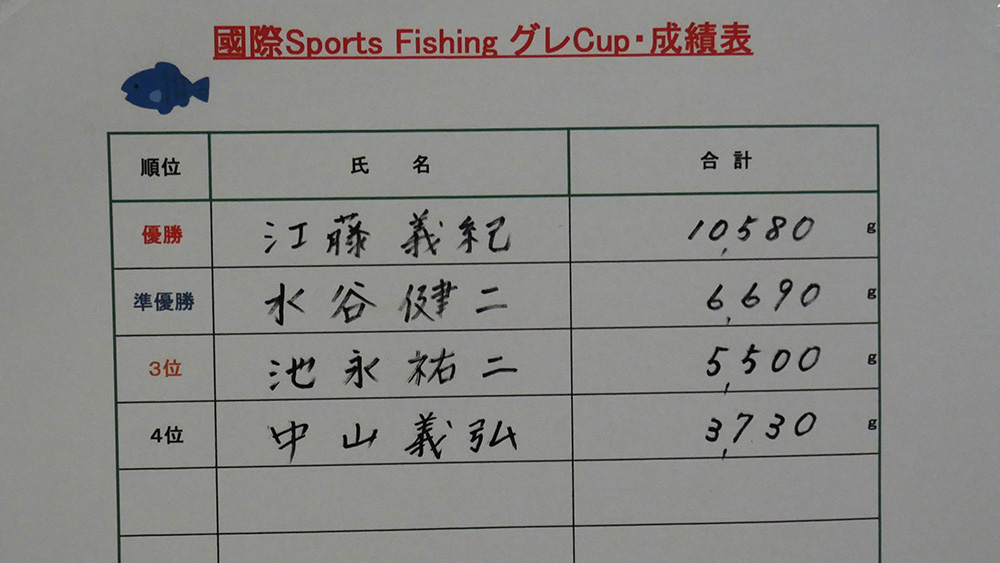 國際Sports Fishing グレCup・成績表
順位 氏 名 合 計
優勝 江藤 義紀 10,580 g
準優勝 水谷 健二 6,690 g
3位 池永 祐二 5,500 g
4位 中山 義弘 3,730 g